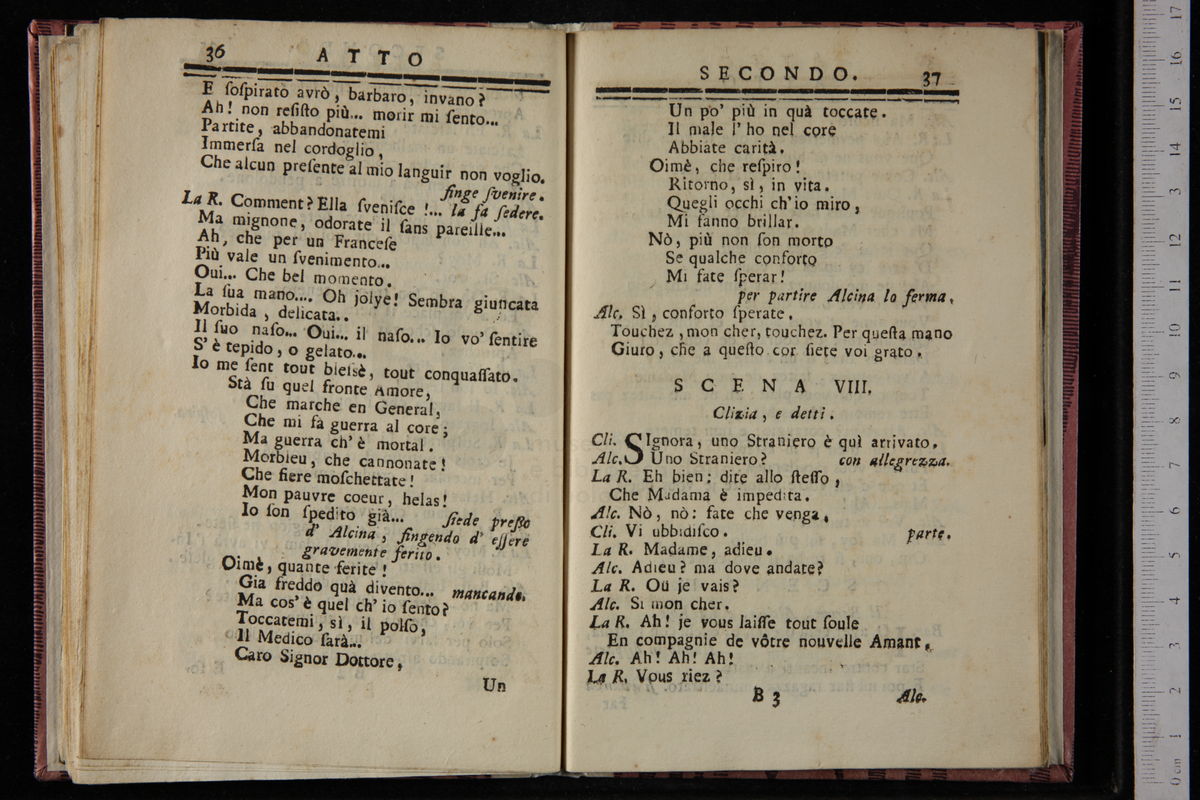 36 ATTO
E ſoſpirato avrò, barbaro, invano?
Ah! non reſiſto più... morir mi ſento...
Partite, abbandonatemi
Immerſa nel cordoglio,
Che alcun preſente al mio languir non voglio.
finge ſvenire.
La R. Comment? Ella ſveniſce !... la fa ſedere.
Ma mignone, odorate il ſans pareille...
Ah, che per un Franceſe
Più vale un ſvenimento...
Oui... Che bel momento.
La ſua mano.... Oh jolye! Sembra giuncata
Morbida, delicata..
Il ſuo naſo... Oui... il naſo... Io vo' ſentire
S' è tepido, o gelato...
Io me ſent tout bleſsè, tout conquaſſato.
Stà ſu quel fronte Amore,
Che marche en General,
Che mi fà guerra al core;
Ma guerra ch' è mortal.
Morbieu, che cannonate!
Che fiere moſchettate!
Mon pauvre coeur, helas!
Io ſon ſpedito già... ſiede preſſo
d' Alcina, fingendo d' eſſere
gravemente ferito.
Oimè, quante ferite!
Gia freddo quà divento... mancando.
Ma cos' è quel ch' io ſento?
Toccatemi, sì, il polſo,
Il Medico ſarà...
Caro Signor Dottore,
Un
SECONDO. 37
Un po' più in quà toccate.
Il male l' ho nel core
Abbiate carità.
Oimè, che reſpiro!
Ritorno, sì, in vita.
Quegli occhi ch' io miro,
Mi fanno brillar.
Nò, più non ſon morto
Se qualche conforto
Mi fate ſperar!
per partire Alcina lo ferma.
Alc. Sì, conforto ſperate.
Touchez, mon cher, touchez. Per queſta mano
Giuro, che a queſto cor ſiete voi grato.
SCENA VIII.
Clizia, e detti.
Cli. SIgnora, uno Straniero è quì arrivato.
Alc. Uno Straniero? con allegrezza.
La R. Eh bien: dite allo ſteſſo,
Che Madama è impedita.
Alc. Nò, nò: fate che venga.
Cli. Vi ubbidiſco. parte.
La R. Madame, adieu.
Alc. Adieu? ma dove andate?
La R. Où je vais?
Alc. Si mon cher.
La R. Ah! je vous laiſſe tout ſoule
En compagnie de vôtre nouvelle Amant.
Alc. Ah! Ah! Ah!
La R. Vous riez?
B 3 Alc.